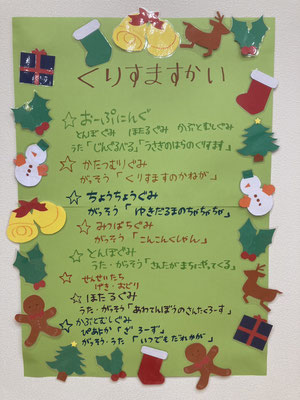 くりすますかい
☆おーぷにんぐ
とんぼぐみ ほたるぐみ かぶとむしぐみ
うた「じんぐるべる」「うさぎのはらのくりすます」
☆かたつむりぐみ
がっそう「くりすますのかねが」
☆ちょうちょうぐみ
がっそう「ゆきだるまのちゃちゃちゃ」
☆みつばちぐみ
がっそう「こんこんくしゃん」
☆とんぼぐみ
うた・がっそう「さんたがまちにやってくる」
☆せんせいたち
げき・おどり
☆ほたるぐみ
うた・がっそう「あわてんぼうのさんたくろーす」
☆かぶとむしぐみ
ぴあよか「ざ ろーず」
がっそう・うた「いつでもだれかが」